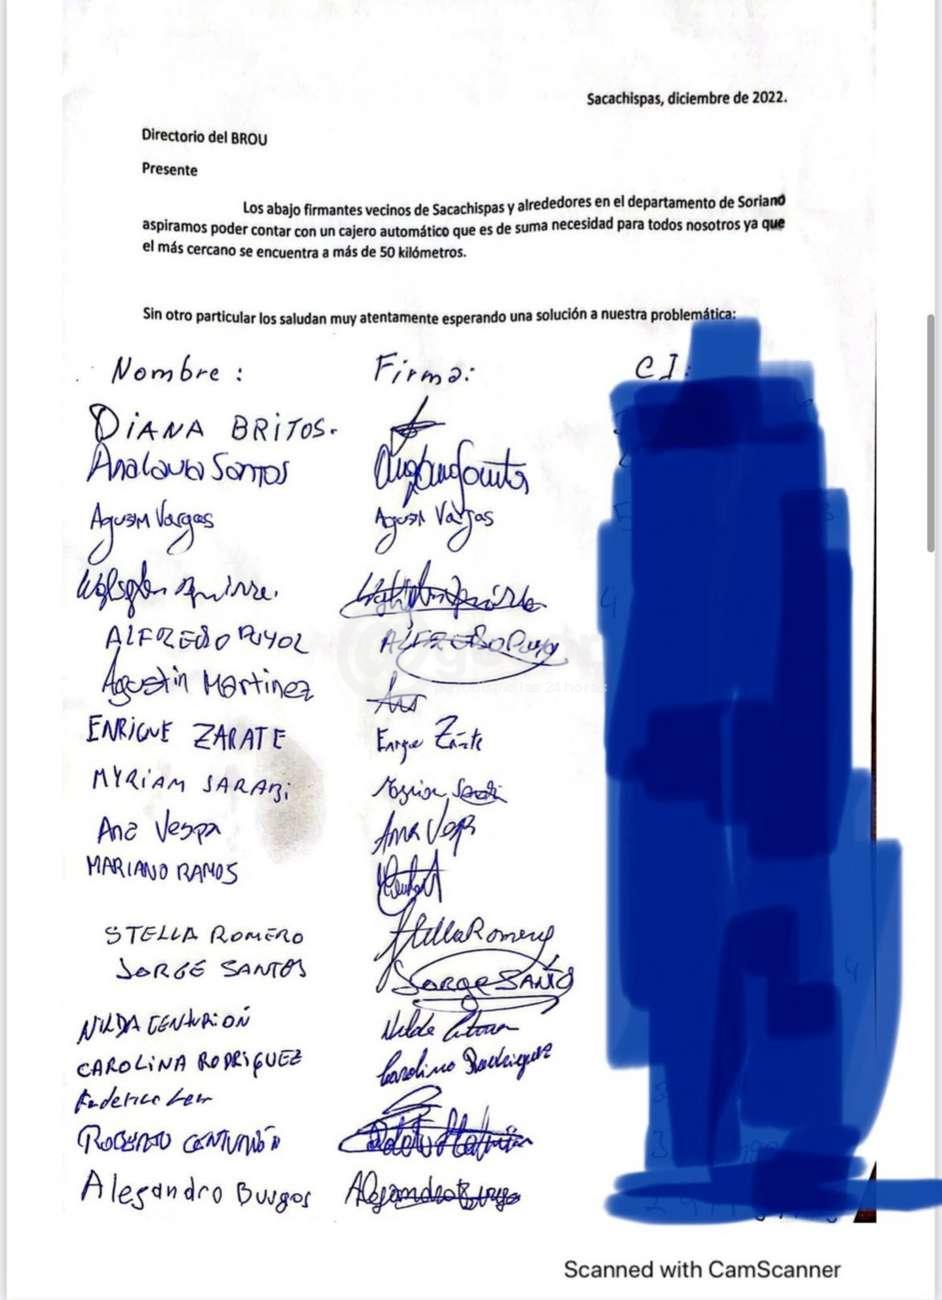 Sacachispas, diciembre de 2022.
Directorio del BROU
Presente
Los abajo firmantes vecinos de Sacachispas y alrededores en el departamento de Soriano
aspiramos poder contar con un cajero automático que es de suma necesidad para todos nosotros ya que
el más cercano se encuentra a más de 50 kilómetros.
Sin otro particular los saludan muy atentamente esperando una solución a nuestra problemática:
Nombre: Firma: CI:
DIANA BRITOS.
Analaura Santos
Agustín Vargas Agustín Vargas
ALFREDO PUYOL ALFREDO Puyol
Agustin Martinez
ENRIQUE ZARATE Enrique Zárate
MYRIAM SARABI Myriam
Ana Vespa Ana
MARIANO RAMOS
STELLA ROMERO Stella Romero
JORGE SANTOS Jorge SANTOS
NILDA CENTURIÓN Nilda
CAROLINA RODRIGUEZ Carolina Rodriguez
Federico
ROBERTO CENTURIÓN
Alejandro Burgos Alejandro Burgos
Scanned with CamScanner